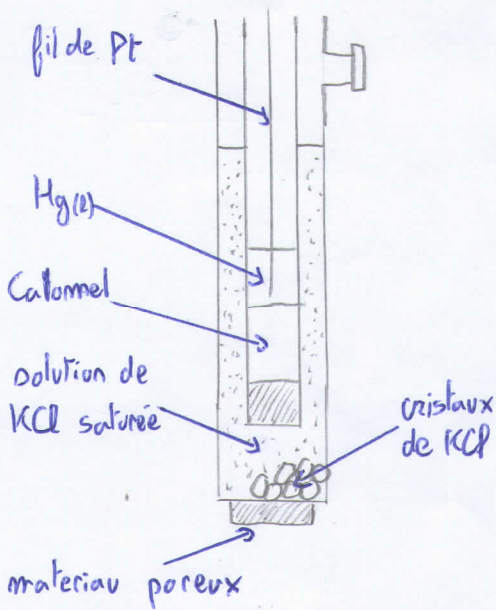 fil de Pt
Hg(l)
Calomnel
solution de
KCl saturée
cristaux
de KCl
materiau poreux